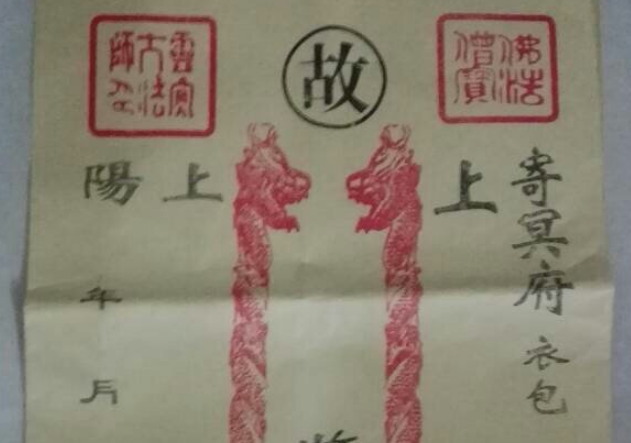 佛法
僧寶
寄冥府衣包
上
故
靈寶
大法
師印
上
陽年月